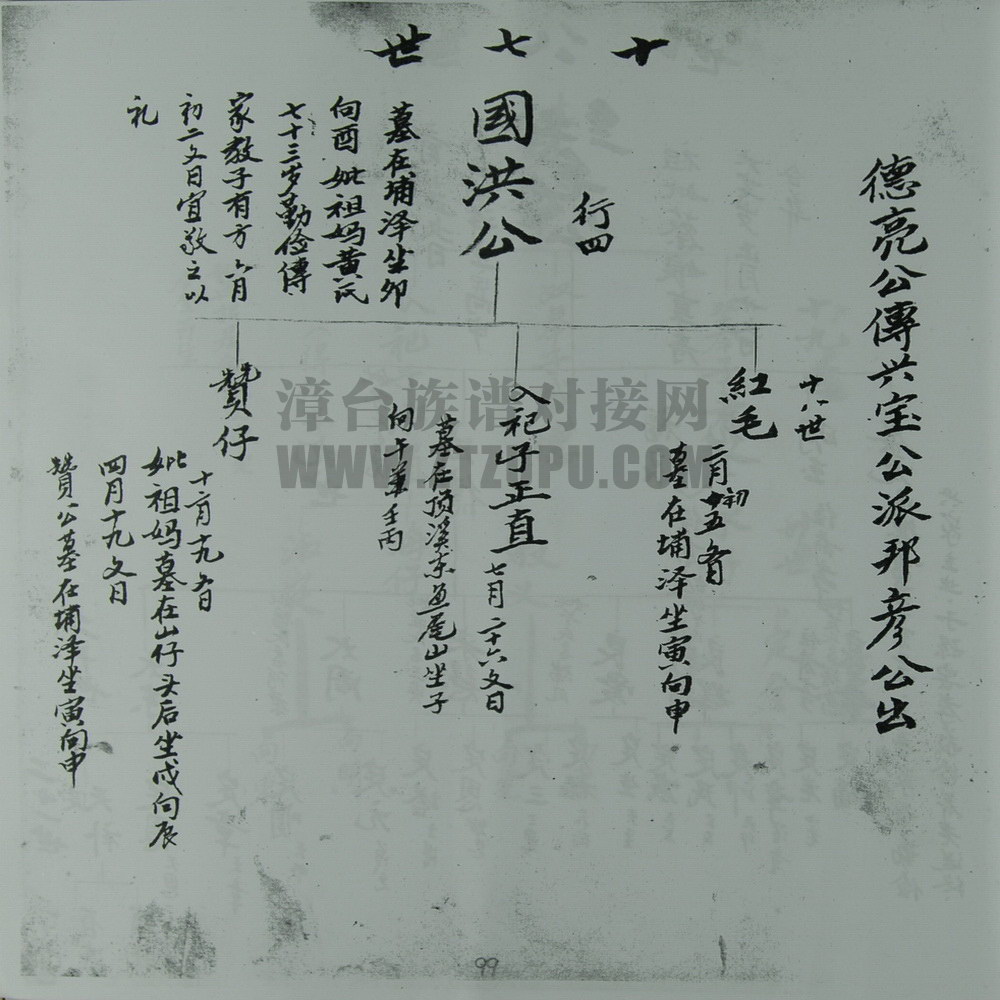 十七世
德亮公傳兴宝公派邦彦公出
行四
國洪公
墓在埔泽坐卯
向酉 妣祖妈黄氏
七十三岁勤俭傳
家教子有方 六月
初二文日宜敬之以
礼
十八世
紅毛
二月初
墓在埔泽坐寅向申
入祀仔正直
七月二十六文日
向午兼壬丙
贊仔
妣祖妈墓在山仔叉后坐戌向辰
四月十九文日
贊公墓在埔泽坐寅向申
漳台族谱对接网
99